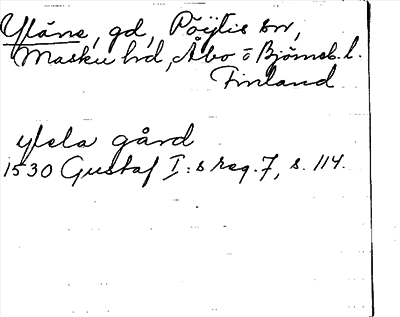 Yläne, gd, Pöytis sn,
Masku hd, Åbo o Björneb. l.
Finland
ylela gård
1530 Gustaf I:s reg. 7, s. 114.